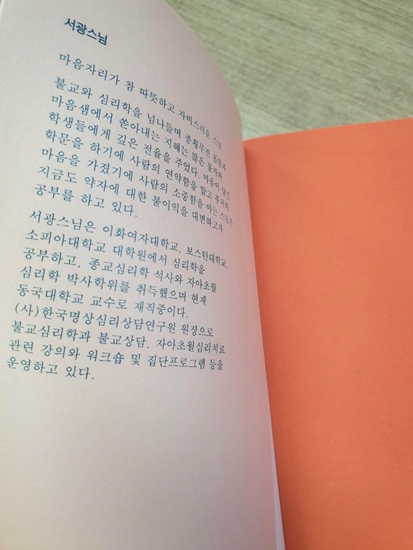 서광스님
마음자리가 참 따뜻하고 자비스러운 스님.
불교와 심리학을 넘나들며 종횡무진
마음샘에서 쏟아내는 지혜는 많은
학생들에게 깊은 전율을 주었다. 마음이
학문을 하기에 사람의 연약함을 알고
마음을 가졌기에 사람의 소중함을 아는 스님은
지금도 약자에 대한 불이익을 대변하고자
공부를 하고 있다.
서광스님은 이화여자대학교, 보스턴대학교,
소피아대학교 대학원에서 심리학을
공부하고, 종교심리학 석사와 자아초월
심리학 박사학위를 취득했으며 현재
동국대학교 교수로 재직중이다.
(사)한국명상심리상담연구원 원장으로
불교심리학과 불교상담, 자아초월심리치료
관련 강의와 워크숍 및 집단프로그램 등을
운영하고 있다.